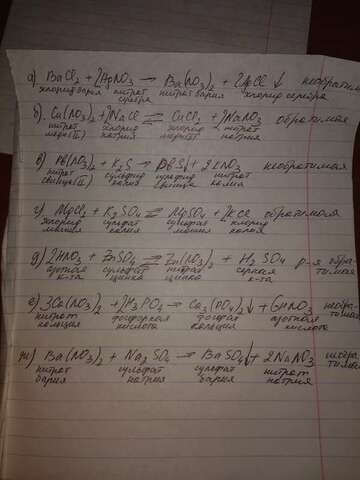 а) BaCl₂ + 2AgNO₃ → Ba(NO₃)₂ + 2AgCl ↓ необратим
хлорид бария нитрат серебра нитрат бария хлорид серебра
б) Cu(NO₃)₂ + 2NaCl ⇄ CuCl₂ + 2NaNO₃ обратимая
нитрат меди(II) хлорид натрия хлорид меди(II) нитрат натрия
в) Pb(NO₃)₂ + K₂S → PbS↓ + 2KNO₃ необратимая
нитрат свинца(II) сульфид калия сульфид свинца нитрат калия
г) MgCl₂ + K₂SO₄ ⇄ MgSO₄ + 2KCl обратимая
хлорид магния сульфат калия сульфат магния хлорид калия
д) 2HNO₃ + ZnSO₄ ⇄ Zn(NO₃)₂ + H₂SO₄ р-я обра-
азотная к-та сульфат цинка нитрат цинка серная к-та тимая
е) 3Ca(NO₃)₂ + 2H₃PO₄ → Ca₃(PO₄)₂↓ + 6HNO₃ необра-
нитрат кальция фосфорная кислота фосфат кальция азотная кислота тимая
ж) Ba(NO₃)₂ + Na₂SO₄ → BaSO₄↓ + 2NaNO₃ необра-
нитрат бария сульфат натрия сульфат бария нитрат натрия тимая